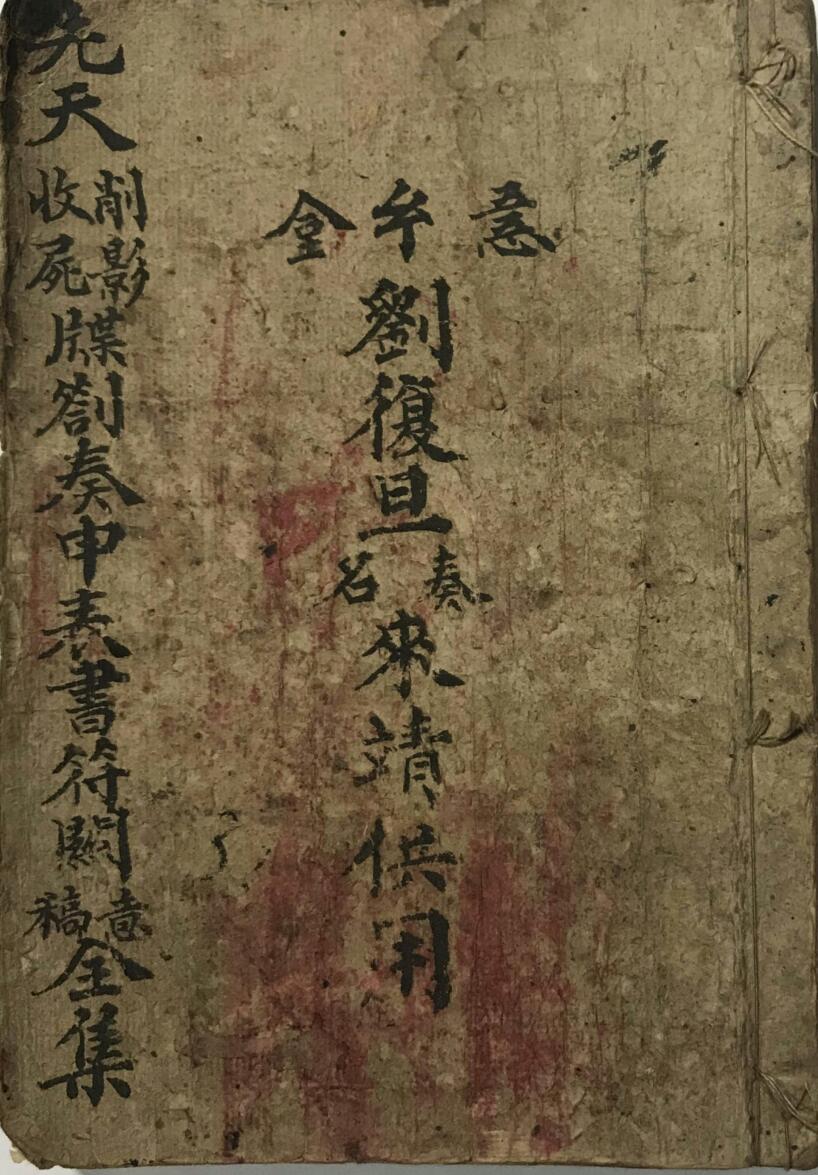 劉復旦奏名來靖供用
先天削影收屍牒劄奏申表書符關意稿全集